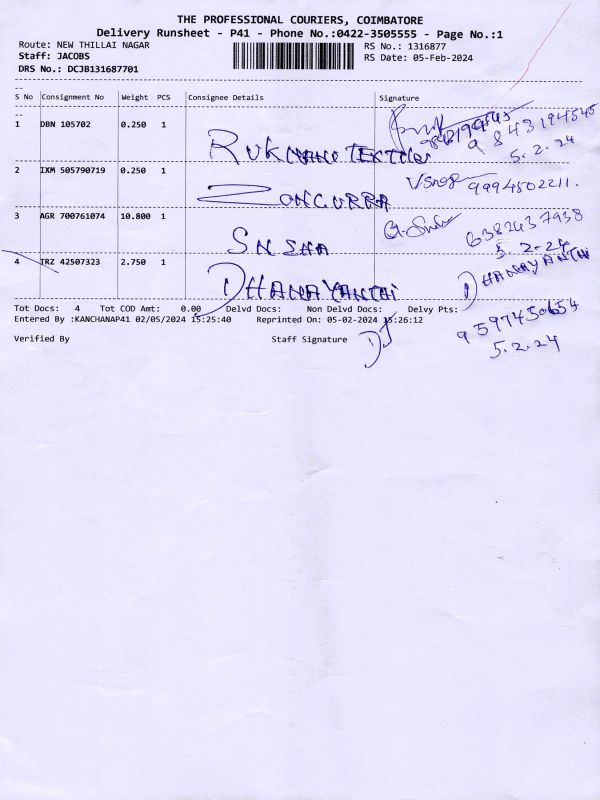 THE PROFESSIONAL COURIERS, COIMBATORE
Delivery Runsheet - P41 - Phone No.:0422-3505555 - Page No.:1
Route: NEW THILLAI NAGAR
Staff: JACOBS
DRS No.: DCJB131687701
RS No.: 1316877
RS Date: 05-Feb-2024
S No Consignment No Weight PCS Consignee Details Signature
1 DBN 105702 0.250 1
9843194545
5.2.24
2 IXM 505790719 0.250 1
9994502211.
3 AGR 700761074 10.800 1 SNSHA
6382437938
5.2-24
4 TRZ 42507323 2.750 1 DHANAYANTAI DHANAYANTAI
Tot Docs: 4 Tot COD Amt: 0.00 Delvd Docs: Non Delvd Docs: Delvy Pts:
Entered By :KANCHANAP41 02/05/2024 15:25:40 Reprinted On: 05-02-2024 15:26:12
9597450654
5.2.24
Verified By Staff Signature